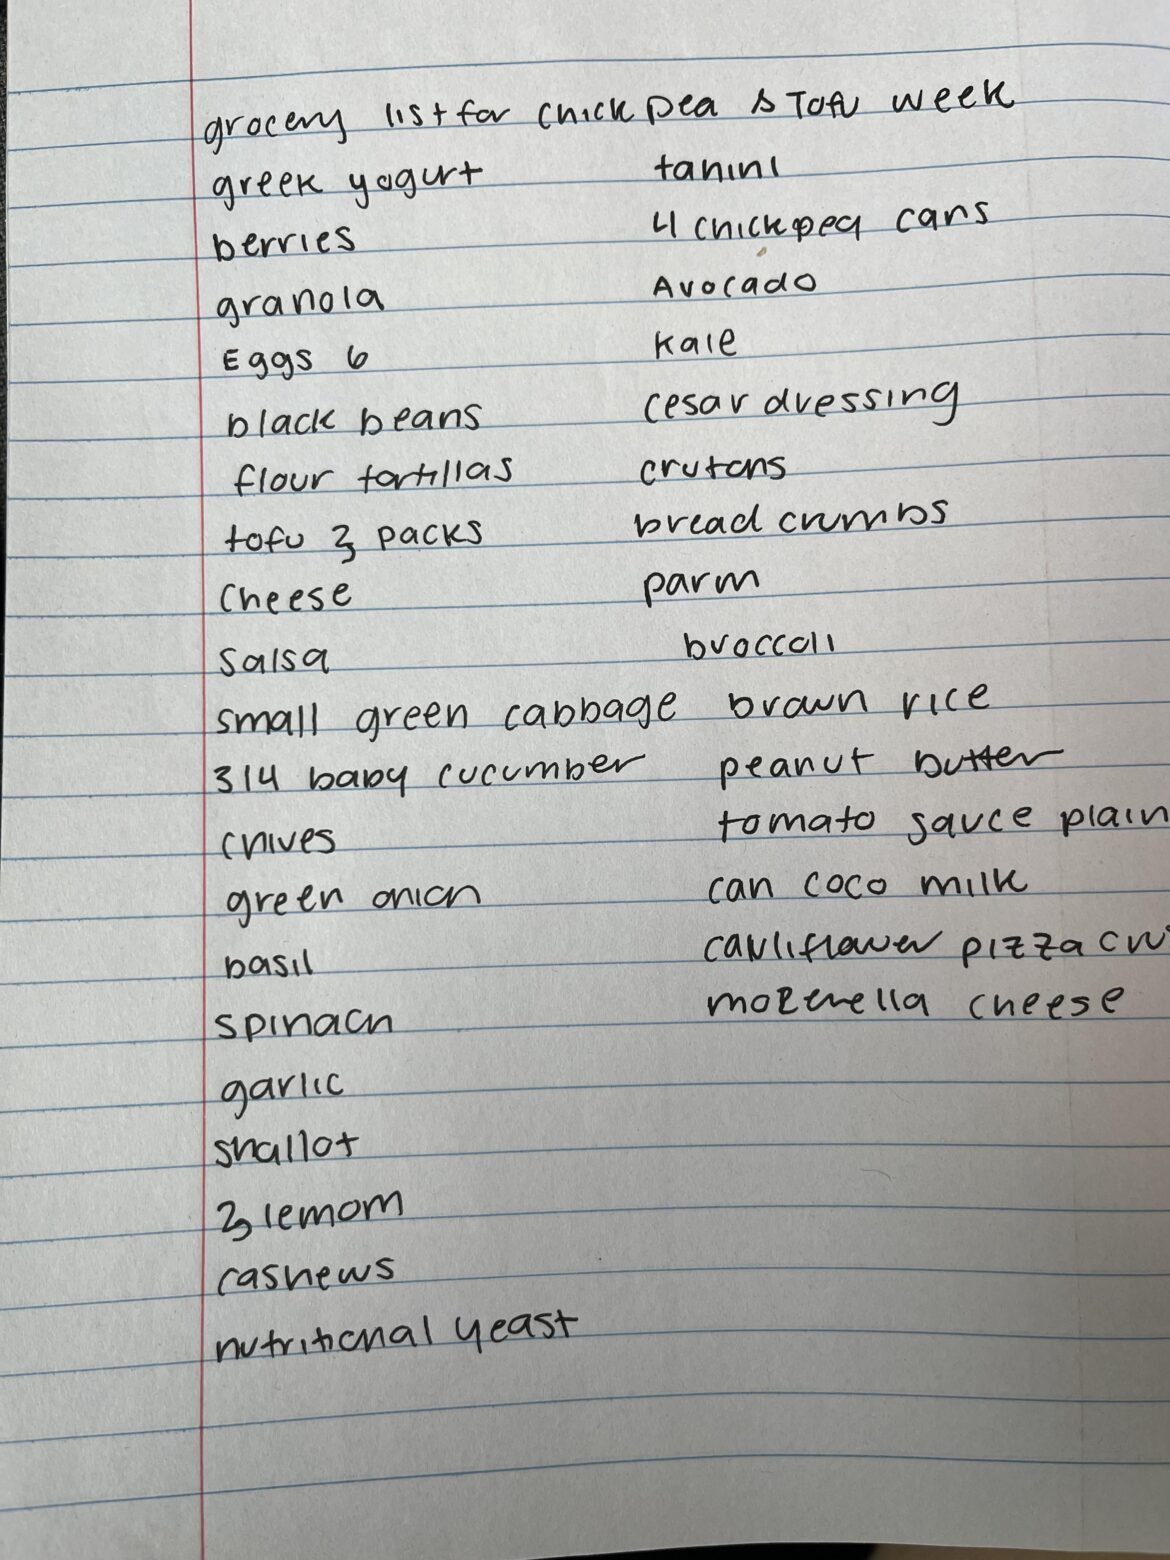 grocery list for chick pea & Tofu week
greek yogurt
berries
granola
Eggs 6
black beans
flour tortillas
tofu 3 packs
Cheese
salsa
small green cabbage
3/4 baby cucumber
chives
green onion
basil
spinach
garlic
shallot
3 lemom
cashews
nutritional yeast
tahini
4 chickpea cans
Avocado
kale
cesar dressing
crutons
bread crumbs
parm
broccoli
brown rice
peanut butter
tomato sauce plain
can coco milk
cauliflower pizza cru
mozerella cheese